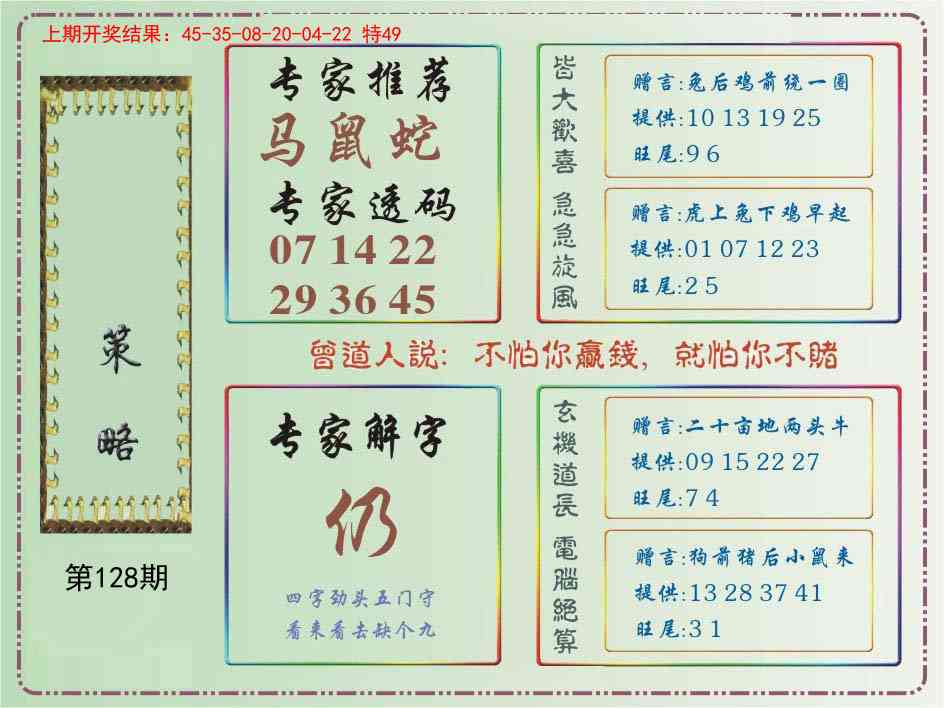 上期开奖结果：45-35-08-20-04-22 特49
策略
第128期
专家推荐
马鼠蛇
专家透码
07 14 22
29 36 45
皆大歡喜
赠言:兔后鸡前绕一圈
提供:10 13 19 25
旺尾:9 6
急急旋風
赠言:虎上兔下鸡早起
提供:01 07 12 23
旺尾:2 5
曾道人説：不怕你贏錢，就怕你不賭
专家解字
仍
四字劲头五门守
看来看去缺个九
玄機道長
赠言:二十亩地两头牛
提供:09 15 22 27
旺尾:7 4
電腦絕算
赠言:狗前猪后小鼠来
提供:13 28 37 41
旺尾:3 1